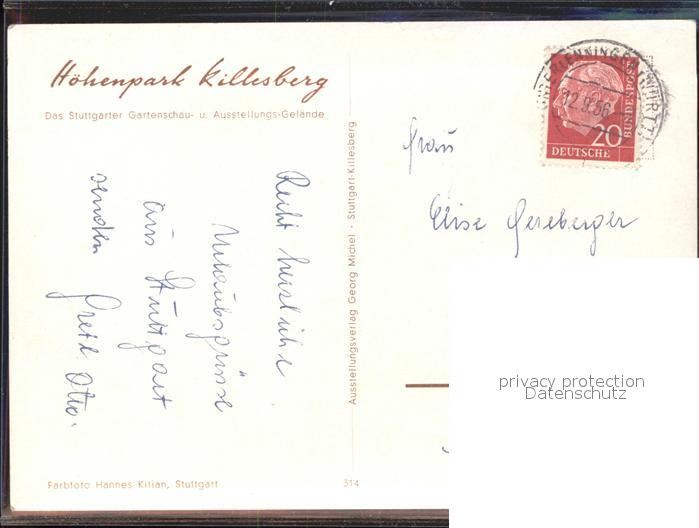 Höhenpark Killesberg
Das Stuttgarter Gartenschau- u. Ausstellungs-Gelände
Recht herzliche
Urlaubsgrüsse
aus Stuttgart
senden
Gretl Otto.
Farbfoto Hannes Kilian, Stuttgart
314
Ausstellungsverlag Georg Michel · Stuttgart-Killesberg
12.9.56
20
DEUTSCHE
BUNDESPOST
Frau
Elise Gereberger
privacy protection
Datenschutz